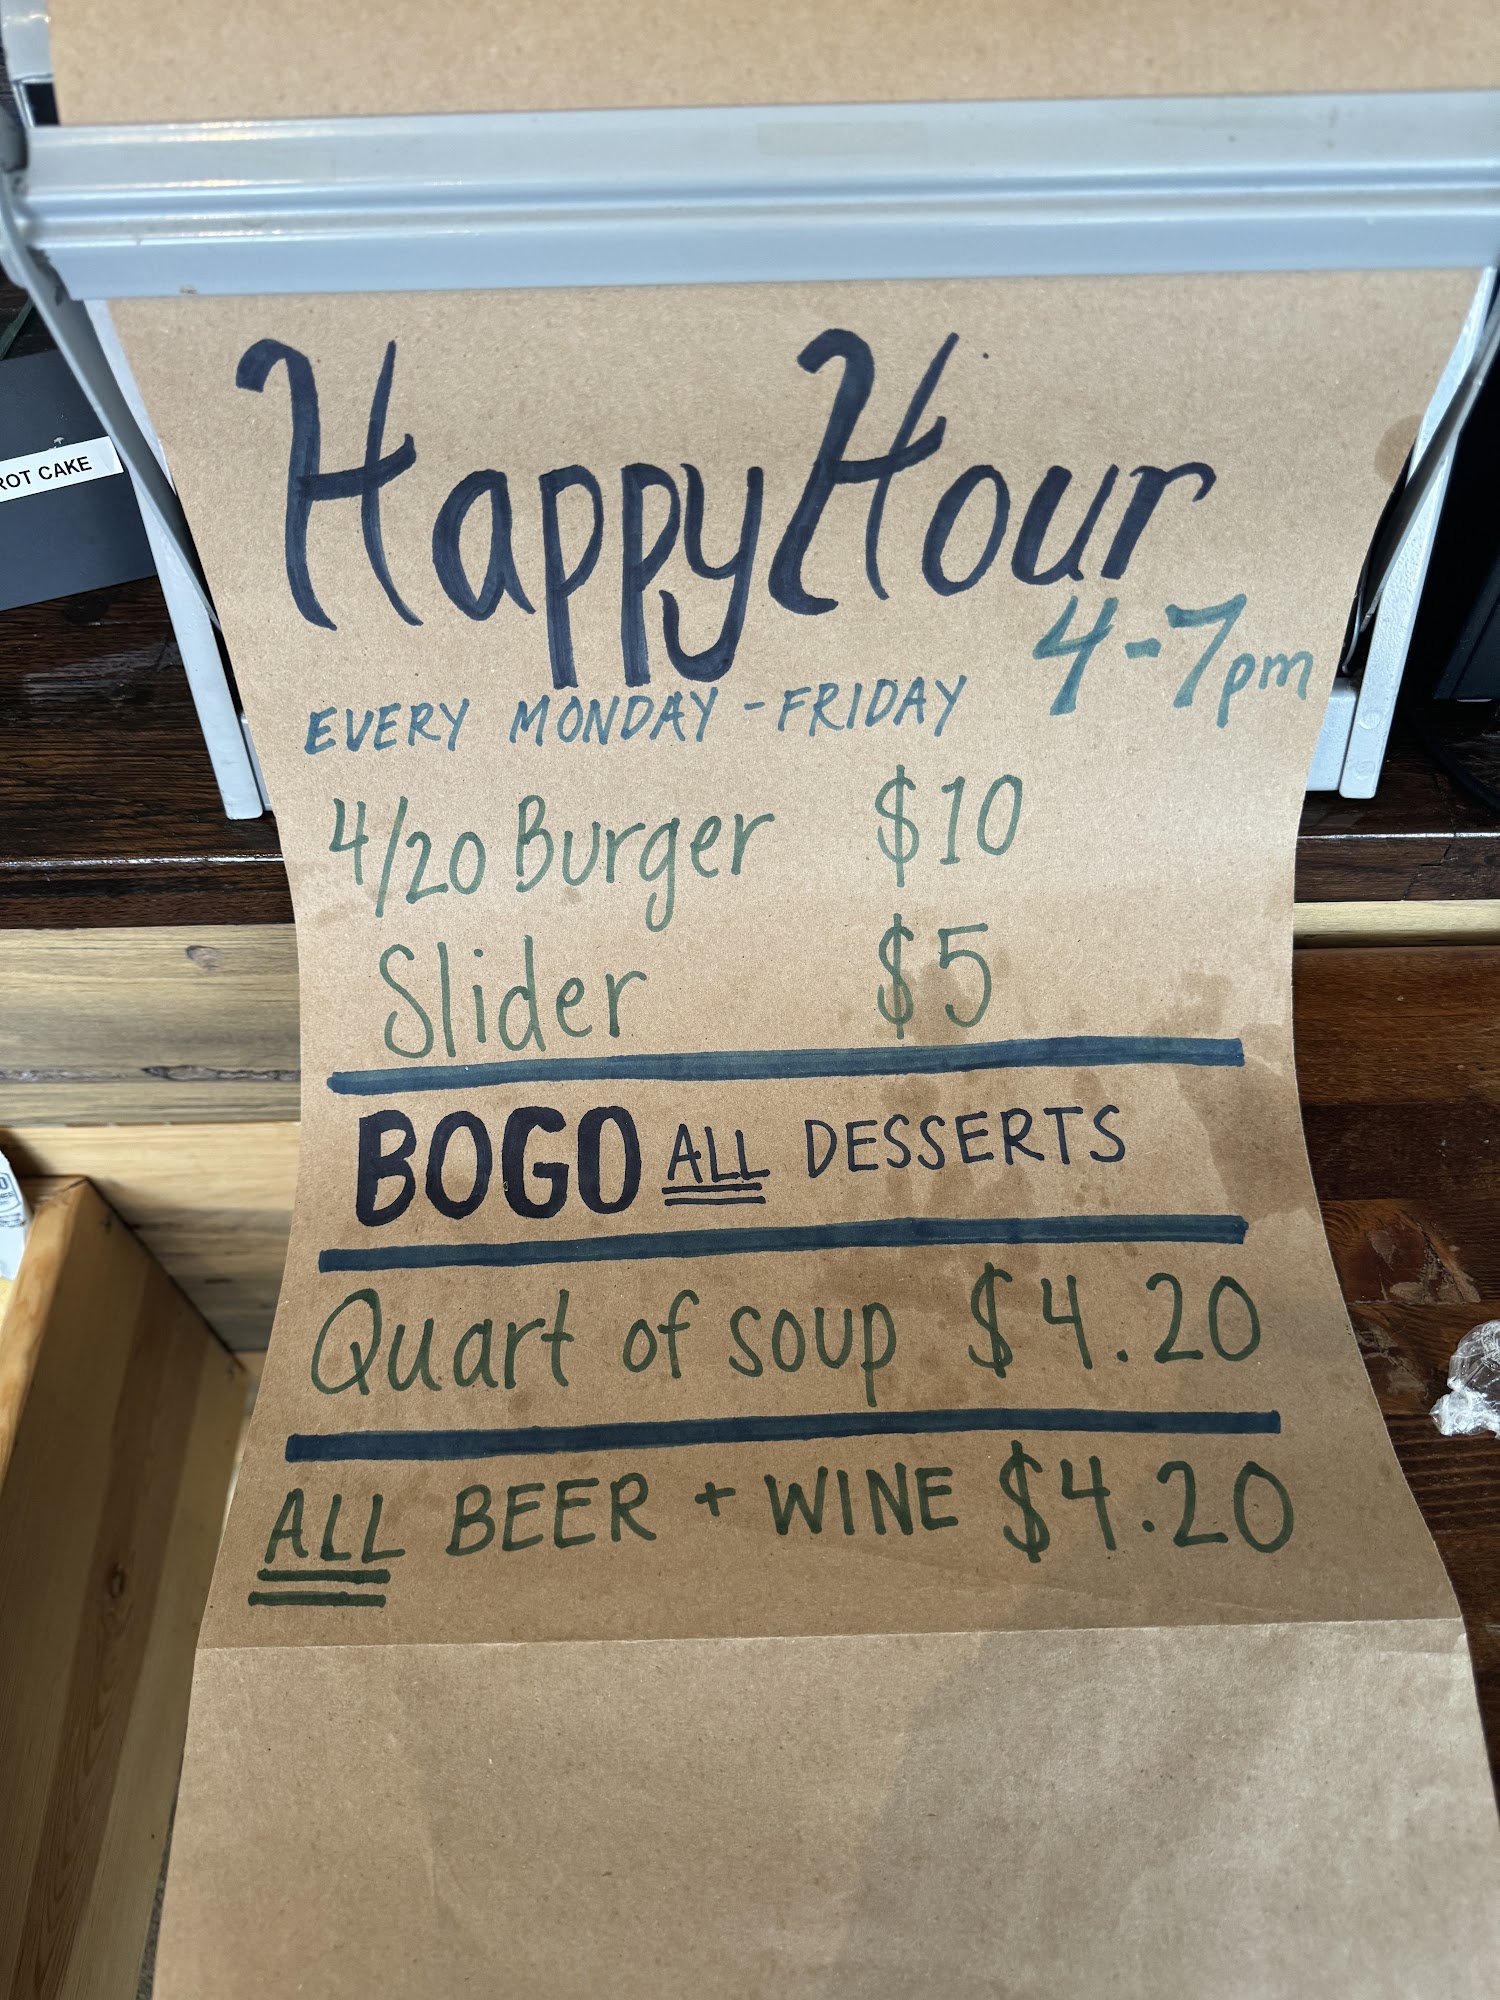 Happy Hour
4-7pm
EVERY MONDAY - FRIDAY
4/20 Burger $10
Slider $5
BOGO ALL DESSERTS
Quart of soup $4.20
ALL BEER + WINE $4.20
ROT CAKE